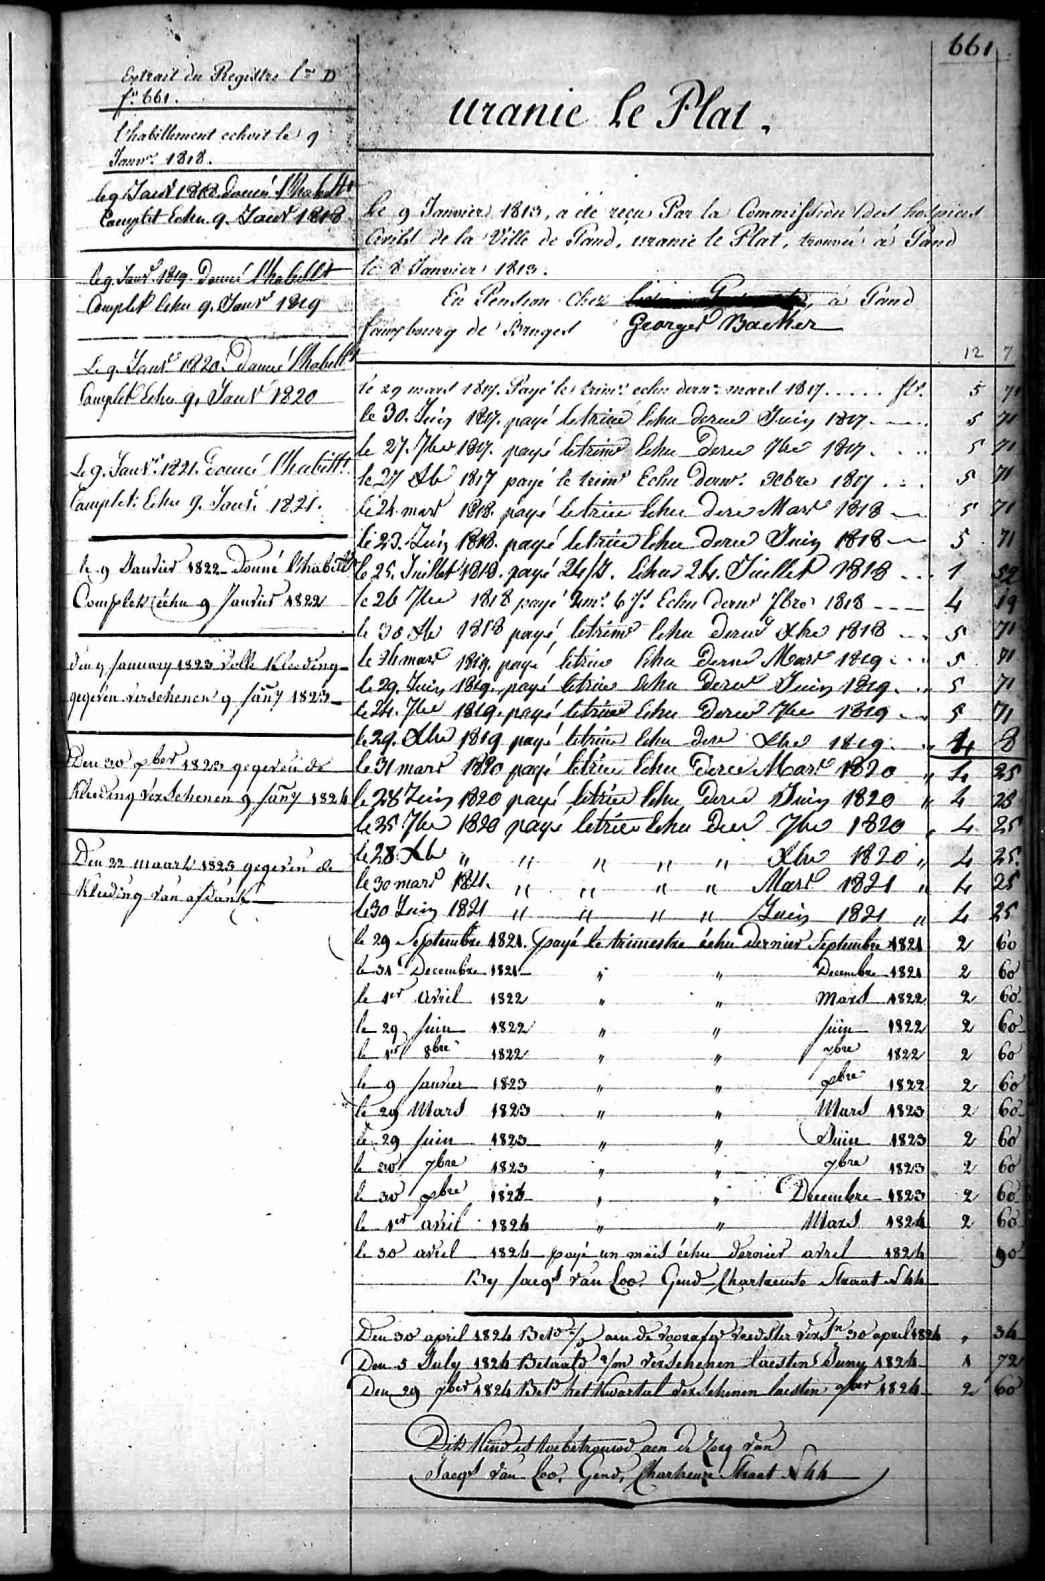 661
Extrait du Registre Lra D
fo 661.
l'habillement echoit le 9
Janvr. 1818.
le 9 Janvr 1818. donné l'habillt
Complet Echu 9. Janvr 1818
le 9. Janvr. 1819. Donné l'habillt
Complet Echu 9. Janvr 1819
Le 9. Janvr 1820. Donné l'habillt
Complet Echu 9. Janvr 1820
Le 9. Janvr. 1821. Donné l'habillt.
Complet. Echu 9. Janvr. 1821.
le 9 Janvier 1822 Donné l'habillt
Complet échu 9 Janvier 1822
den 9 January 1823 volle Kleeding
gegeven verschenen 9 Jany 1823
Den 30 9ber 1823 gegeven de
Kleeding verschenen 9 Jany 1824
Den 22 maart 1825 gegeven de
Kleeding van afdank
uranie Le Plat.
Le 9 Janvier 1813, a été reçu Par la Commission des hospices
Civils de la Ville de Gand, uranie le Plat, trouvée à Gand
le 8 Janvier 1813.
En Pension chez à Gand
fauxbourg de Bruges Georges Backer
12 7
le 29 mars 1817. Payé le trimr. echu dernr. mars 1817 . . . . . 5 71
le 30. Juin 1817. payé le trim Echu dernr Juin 1817 . . . 5 71
le 27. 7bre 1817. payé le trim Echu Dernr 7bre 1817 . . . 5 71
le 27 Xb 1817 payé le trimr Echu dernr. Xbre 1817 . . . 5 71
le 24. mars 1818. payé le trim Echu dernr Mars 1818 5 71
le 23. Juin 1818. payé le trim Echu dernr Juin 1818 5 71
le 25. Juillet 1818. payé 24/J. Echus 24. Juillet 1818 . . . 1 52
le 26 7bre 1818 payé 2 ms. 6 Js. Echu dernr 7bre 1818 4 19
le 30 Xb 1818 payé le trimr Echu dernr Xbre 1818 5 71
le 26 mars 1819. payé le trim Echu Dernr Mars 1819 . . 5 71
le 29. Juin 1819. payé le trim Echu Dernr Juin 1819. 5 71
le 24. 7bre 1819. payé le trim Echu Dernr 7bre 1819 5 71
le 29. Xbre 1819 payé le trim Echu dernr Xbre 1819. 4 8
le 31 mars 1820 payé le trim Echu Dernr Mars 1820 " 4 25
le 28 Juin 1820 payé le trim Echu Dernr Juin 1820 " 4 25
le 25 7bre 1820 payé le trim Echu Der 7bre 1820 " 4 25
le 28 Xb " " " " " Xbre 1820 " 4 25
le 30 mars 1821. " " " " Mars 1821 " 4 25
le 30 Juin 1821 " " " " Juin 1821 " 4 25
le 29 Septembre 1821. payé le trimestre échu dernier Septembre 1821 2 60
le 31 Decembre 1821 " " Decembre 1821 2 60
le 1er Avril 1822 " " Mars 1822 2 60
le 29 Juin 1822 " " Juin 1822 2 60
le 1er 8bre 1822 " " 7bre 1822 2 60
le 9 Janvier 1823 " " xbre 1822 2 60
le 29 Mars 1823 " " Mars 1823 2 60
le 29 Juin 1823 " " Juin 1823 2 60
le 30 7bre 1823 " " 7bre 1823 2 60
le 30 xbre 1823 " " Decembre 1823 2 60
le 1er avril 1824 " " Mars 1824 2 60
le 30 avril 1824 payé un mois échu dernier avril 1824 90
By Jacqs Van Loo, Gend, Chartreuse Straat N 44
Den 30 april 1824 Betd aen de voorafge voedster versn 30 april 1824 " 34
Den 5 July 1824 Betaald 2/m verschenen laesten Juny 1824 1 72
Den 29 7ber 1824 Betd het Kwartal verschenen laesten 7ber 1824 2 60
Dit Kind is toebetrouwd aen de Zorg van
Jacqs Van Loo, Gend, Chartreuse Straat N 44